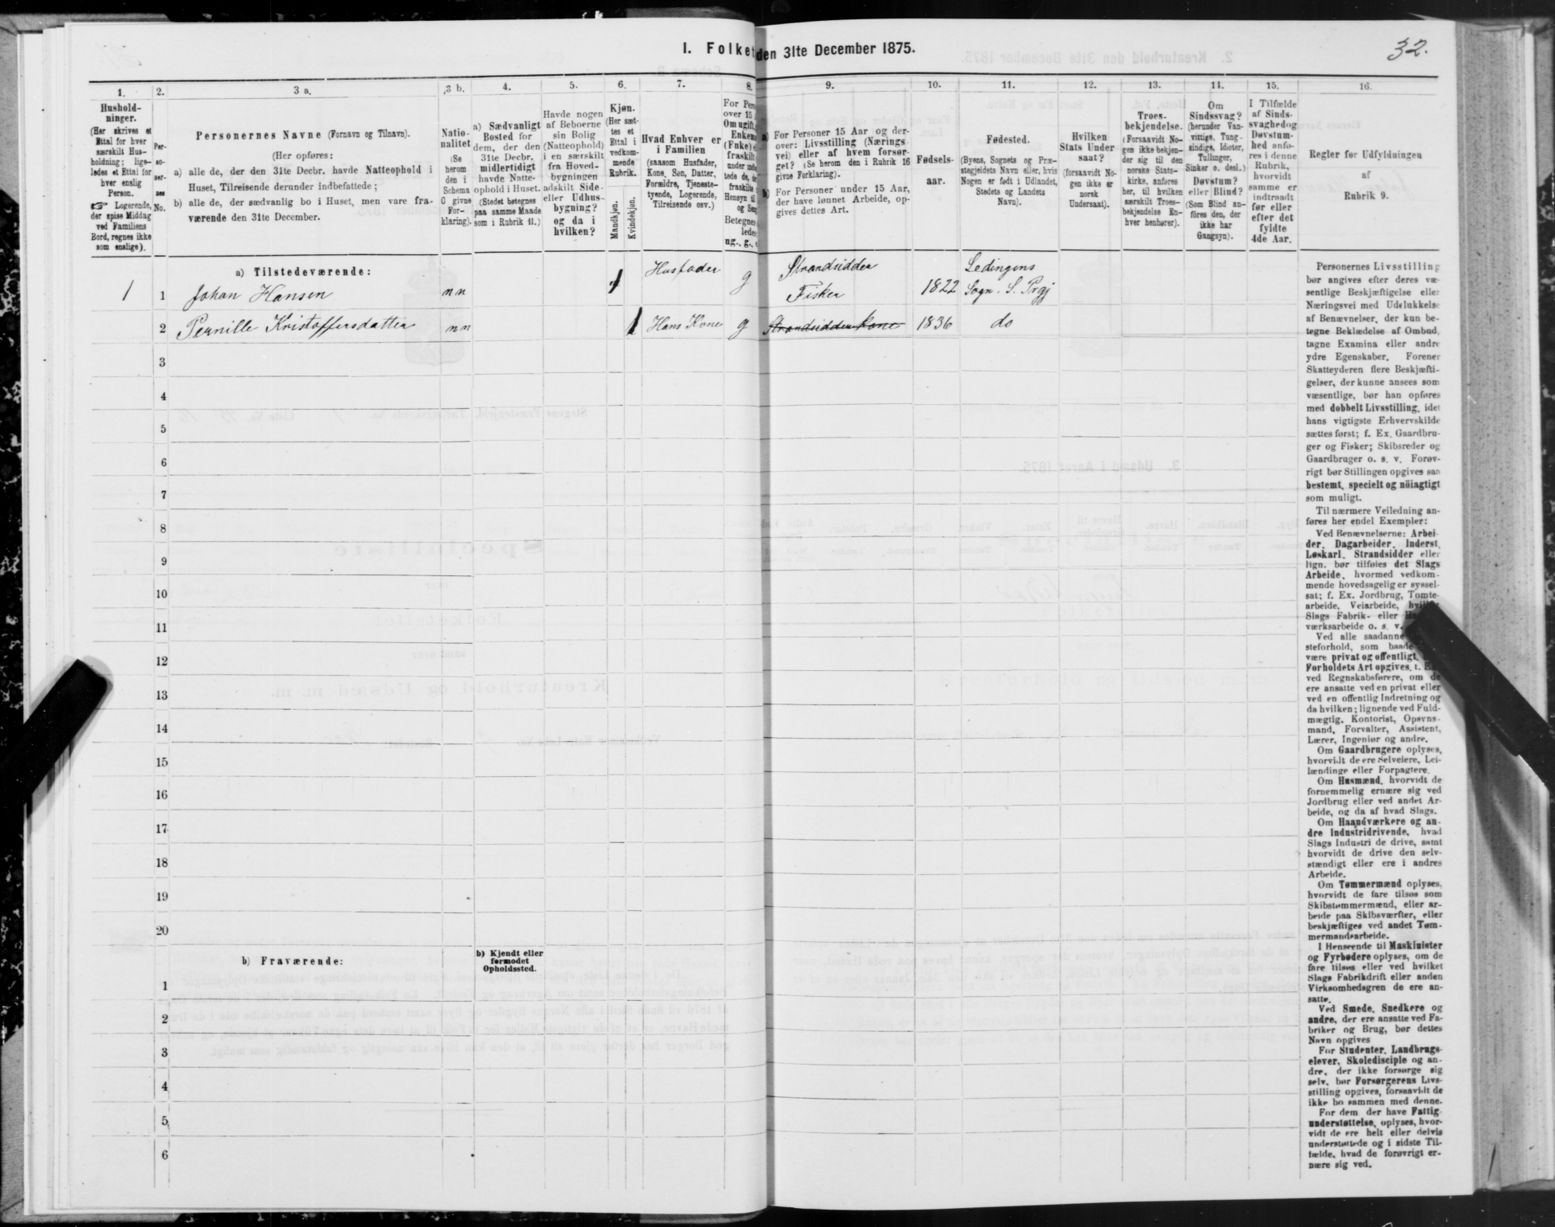 I. Folket
den 31te December 1875.
32.
1.
2.
3 a.
3 b.
4.
5.
6.
7.
8.
9.
10.
11.
12.
13.
14.
15.
16.
Hushold-
ninger.
(Her skrives et
Ettal for hver
særskilt Hus-
holdning; lige-
ledes et Ettal for
hver enslig
Person.
☞ Logerende,
der spise Middag
ved Familiens
Bord, regnes ikke
som enslige).
Per-
so-
ner-
nes
No.
Personernes Navne (Fornavn og Tilnavn).
(Her opføres:
a) alle de, der den 31te Decbr. havde Natteophold i
Huset, Tilreisende derunder indbefattede;
b) alle de, der sædvanlig bo i Huset, men vare fra-
værende den 31te December.
Natio-
nalitet
(Se
herom
den i
Schema
C givne
For-
klaring).
a) Sædvanligt
Bosted for
dem, der den
31te Decbr.
midlertidigt
havde Natte-
ophold i Huset.
(Stedet betegnes
paa samme Maade
som i Rubrik 11.)
Havde nogen
af Beboerne
sin Bolig
(Natteophold)
i en særskilt
fra Hoved-
bygningen
adskilt Side-
eller Udhus-
bygning?
og da i
hvilken?
Kjøn.
(Her sæt-
tes et
Ettal i
vedkom-
mende
Rubrik.
Mandkjøn.
Kvindekjøn.
Hvad Enhver er
i Familien
(saasom Husfader,
Kone, Søn, Datter,
Forældre, Tjeneste-
tyende, Logerende,
Tilreisende osv.)
For Pers
over 15
Om ugift,
Enkem
(Enke) e
fraskilt
Betegnes
ledes
ug., g.,
a) For Personer 15 Aar og der-
over: Livsstilling (Nærings-
vei) eller af hvem forsør-
get? (Se herom den i Rubrik 16
givne Forklaring).
b) For Personer under 15 Aar,
der have lønnet Arbeide, op-
gives dettes Art.
Fødsels-
aar.
Fødested.
(Byens, Sognets og Præ-
stegjeldets Navn eller, hvis
Nogen er født i Udlandet,
Stedets og Landets
Navn).
Hvilken
Stats Under
saat?
(forsaavidt No-
gen ikke er
norsk
Undersaat).
Troes-
bekjendelse.
(Forsaavidt No-
gen ikke bekjen-
der sig til den
norske Stats-
kirke, anføres
her, til hvilken
særskilt Troes-
bekjendelse En-
hver henhører).
Om
Sindssvag?
(herunder Van-
vittige, Tung-
sindige, Idioter,
Tullinger,
Sinker o. desl.)
Døvstum?
eller Blind?
(Som Blind an-
føres den, der
ikke har
Gangsyn).
I Tilfælde
af Sinds-
svaghed og
Døvstum-
hed anfø-
res i denne
Rubrik,
hvorvidt
samme er
indtraadt
før eller
efter det
fyldte
4de Aar.
Regler for Udfyldningen
af
Rubrik 9.
a) Tilstedeværende:
1 1 Johan Hansen nn 1 Husfader g Strandsidder
Fisker 1822 Ledingens
Sogn. S. Prgj
2 Pernille Kristoffersdatter nn 1 Hans Kone g Strandsidder kone 1836 do
3
4
5
6
7
8
9
10
11
12
13
14
15
16
17
18
19
20
b) Fraværende:
b) Kjendt eller
formodet
Opholdssted.
1
2
3
4
5
6
Personernes Livsstilling
bør angives efter deres væ-
sentlige Beskjæftigelse eller
Næringsvei med Udelukkelse
af Benævnelser, der kun be-
tegne Beklædelse af Ombud,
tagne Examina eller andre
ydre Egenskaber. Forener
Skatteyderen flere Beskjæfti-
gelser, der kunne ansees som
væsentlige, bør han opføres
med dobbelt Livsstilling, idet
hans vigtigste Erhvervskilde
sættes først; f. Ex. Gaardbru-
ger og Fisker; Skibsreder og
Gaardbruger o. s. v. Forøv-
rigt bør Stillingen opgives saa
bestemt, specielt og nøiagtigt
som muligt.
Til nærmere Veiledning an-
føres her endel Exempler:
Ved Benævnelserne: Arbei-
der, Dagarbeider, Inderst,
Løskarl, Strandsidder eller
lign. bør tilføies det Slags
Arbeide, hvormed vedkom-
mende hovedsagelig er syssel-
sat; f. Ex. Jordbrug, Tomte-
arbeide, Veiarbeide, hvilket
Slags Fabrik- eller
værksarbeide o. s. v.
Ved alle saadanne
steforhold, som baade
være privat og offentligt,
Forholdets Art opgives, t. Ex.
ved Regnskabsførere, om de
ere ansatte ved en privat eller
ved en offentlig Indretning og
da hvilken; lignende ved Fuld-
mægtig, Kontorist, Opsyns-
mand, Forvalter, Assistent,
Lærer, Ingeniør og andre.
Om Gaardbrugere oplyses,
hvorvidt de ere Selveiere, Lei-
lændinge eller Forpagtere.
Om Husmænd, hvorvidt de
fornemmelig ernære sig ved
Jordbrug eller ved andet Ar-
beide, og da af hvad Slags.
Om Haandværkere og an-
dre Industridrivende, hvad
Slags Industri de drive, samt
hvorvidt de drive den selv-
stændigt eller ere i andres
Arbeide.
Om Tømmermænd oplyses,
hvorvidt de fare tilsøs som
Skibstømmermænd, eller ar-
beide paa Skibsværfter, eller
beskjæftiges ved andet Tøm-
mermandsarbeide.
I Henseende til Maskinister
og Fyrbødere oplyses, om de
fare tilsøs eller ved hvilket
Slags Fabrikdrift eller anden
Virksomhedsgren de ere an-
satte.
Ved Smede, Snedkere og
andre, der ere ansatte ved Fa-
briker og Brug, bør dettes
Navn opgives
For Studenter, Landbrugs-
elever, Skoledisciple og an-
dre, der ikke forsørge sig
selv, bør Forsørgerens Livs-
stilling opgives, forsaavidt de
ikke bo sammen med denne.
For dem, der have Fattig-
understøttelse, oplyses, hvor-
vidt de ere helt eller delvis
understøttede og i sidste Til-
fælde, hvad de forøvrigt er-
nære sig ved.